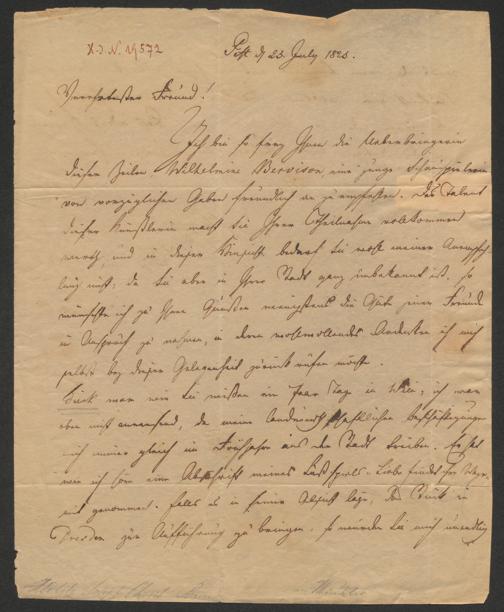 H.I.N. 19572
Pest d 23. July 1825.
Verehrtester Freund!
Ich bin so frey Ihnen die Ueberbringerin
dieser Zeilen Wilhelmine eine junge Schauspielerin
von vorzüglichen Gaben freundlich an zu empfehlen. Das Talent
dieser Künstlerin macht sie Ihrer Theilnahme vollkommen
werth, und in dieser Hinsicht bedarf sie wohl meiner Anempfeh
lung nicht; da sie aber in Ihrer Stadt ganz unbekannt ist, so
wünschte ich zu Ihren Gunsten wenigstens die Güte meiner Freunde
in Anspruch zu nehmen, in deren wohlwollendes Andenken ich mich
selbst bey dieser Gelegenheit zurück rufen möchte.
Tieck war wie Sie wissen ein Paar Tage in Wien; ich war
aber nicht anwesend, da meine landwirthschaftlichen Beschäftigungen
mich immer gleich im Frühjahr aus der Stadt treiben. Er hat
wie ich höre eine Abschrift meines Lustspiels: Liebe findet ihre Wege,
mit genommen. Falls es in seiner Absicht läge, das Stück in
Dresden zur Aufführung zu bringen, so würden Sie mich unendlich